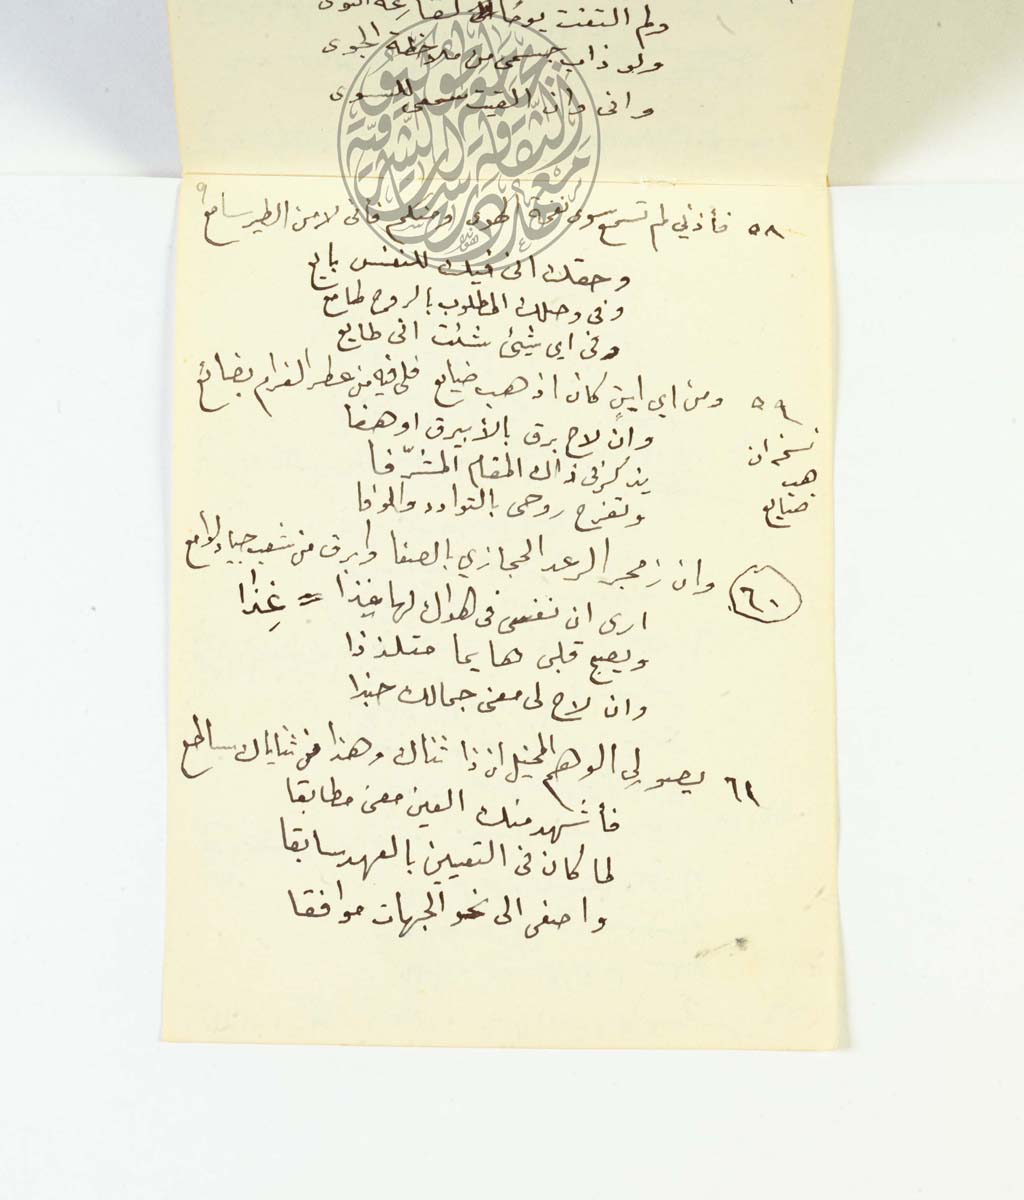 ولم التفت يوما
ولو ذاب جسمي من ملاحظة الجوى
واني وان القيت سمعي للسوى
٩
٥٨ فأذني لم تسمع سوى نغمة الهوى ومنكم فاني لا من الطير سامع
وحقك اني فيك للنفس بايع
وفي وصلك المطلوب بالروح طامع
وفي اي شيئ شئت اني طايع
٥٩ ومن اي اين كان اذ هب ضايع فلي فيه من عطر الغرام بضائع
نسخه ان
هب
ضايع
وان لاح برق بالأبيرق او هفا
يذكرني ذاك المقام المشرّفا
وتفرح روحي بالتوادد والوفا
٦٠ وان زمجر الرعد الحجازي بالصفا وابرق من شعب جياد لوامع
ارى ان نفسي في هواك لها غذا = غِذا
ويصبح قلبي هايما متلذذا
وان لاح لي معنى جمالك حبذا
٦١ يصور لي الوهم المخيل ان ذا ثناك وهذا من ثناياك ساطع
فأشهد منك العين معنى مطابقا
لما كان في التعيين بالعهد سابقا
واصغي الى نحو الجهات موافقا